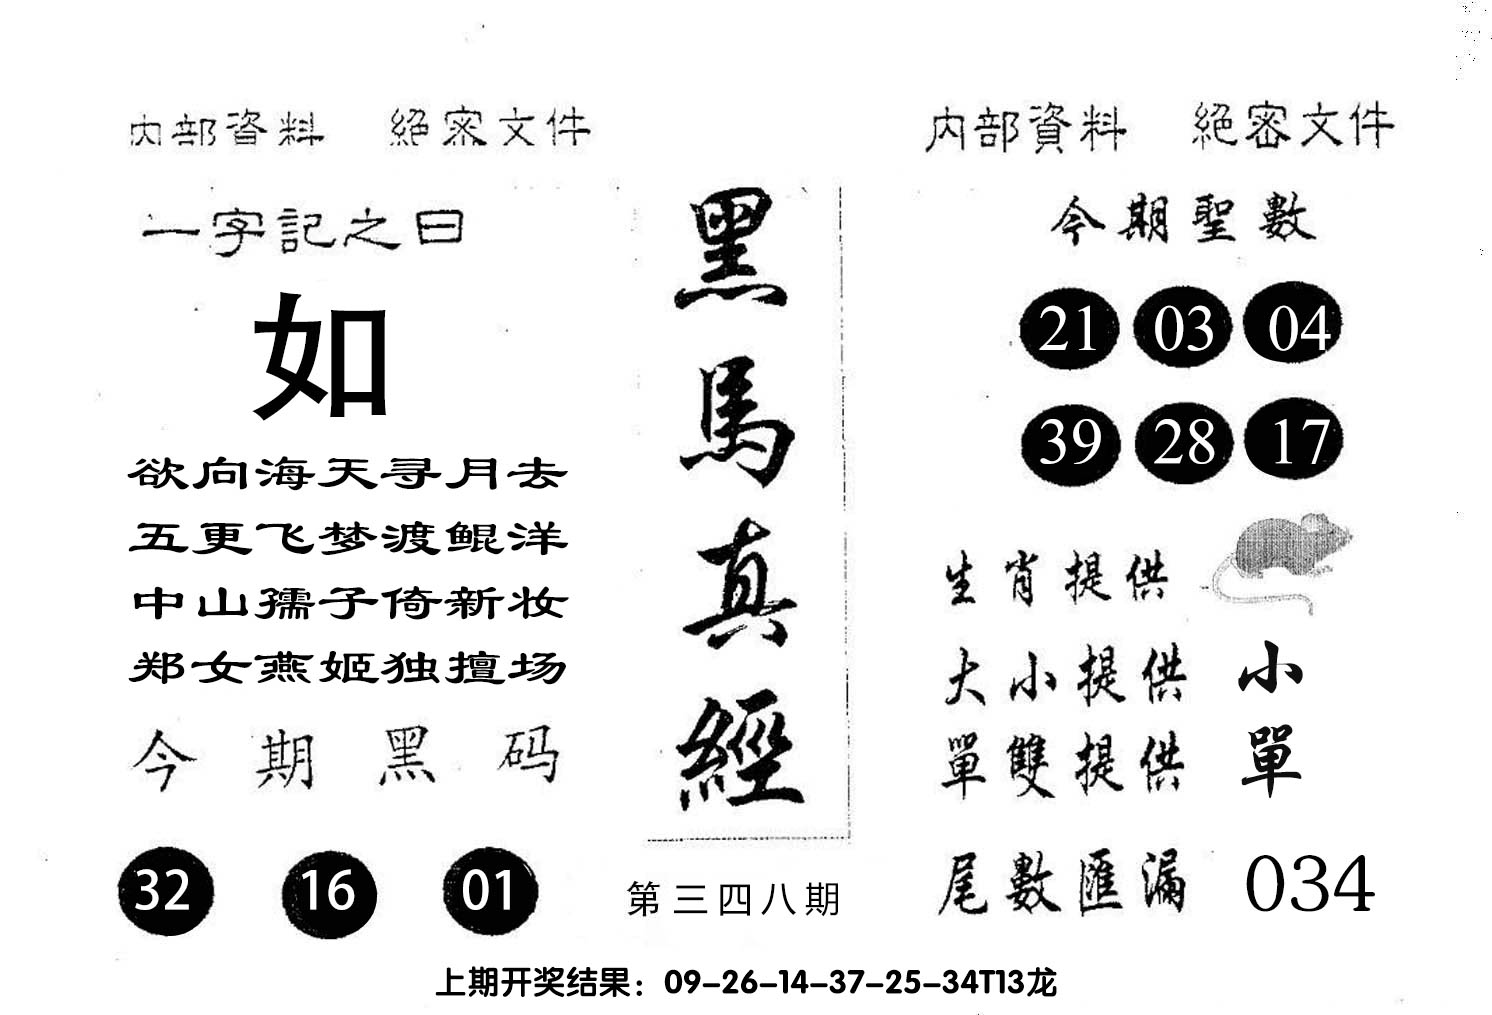 内部資料 絕密文件
一字記之曰
如
欲向海天寻月去
五更飞梦渡鲲洋
中山孺子倚新妆
郑女燕姬独擅场
今期黑码
32 16 01
黑馬真經
第三四八期
内部資料 絕密文件
今期聖數
21 03 04
39 28 17
生肖提供
大小提供 小
單雙提供 單
尾數匯漏 034
上期开奖结果：09-26-14-37-25-34T13龙